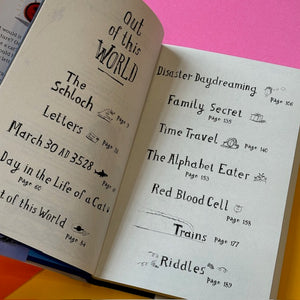 out
of this
WORLD
The
Schloch
Page
Letters
Page
March 30 AD 3528
Day in the Life of a Cat
Page 60
t of this World
Page 84
Disaster Daydreaming
Page 106
Family Secret
Page 135
Time Travel
Page 140
The Alphabet Eater
Page 153
Red Blood Cell
Page 158
Trains
Page 177
Riddles
Page 189